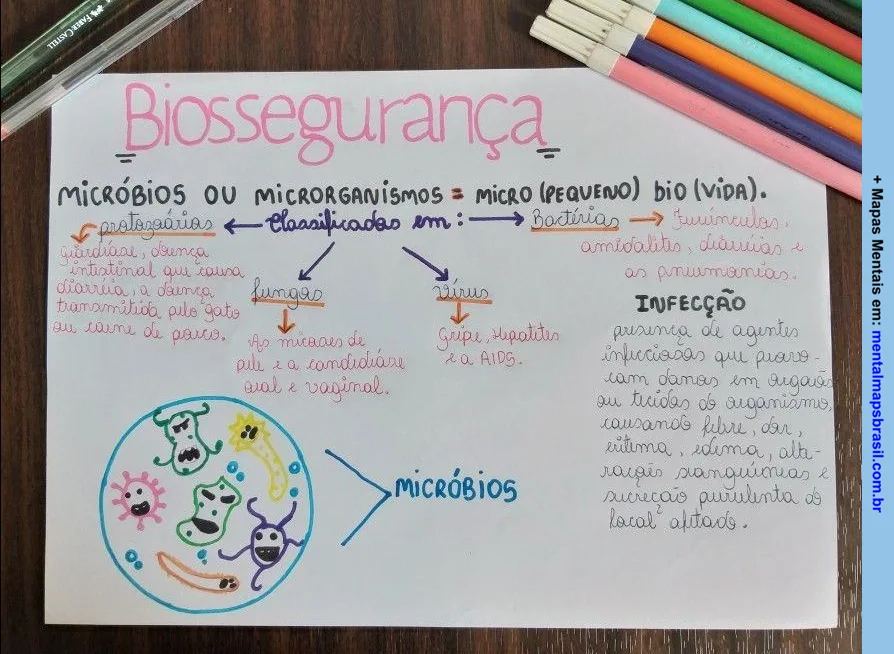 FABER-CASTELL
Biossegurança
MICRÓBIOS OU MICRORGANISMOS = MICRO (PEQUENO) BIO (VIDA).
protozoários ← Classificados em: → Bactérias → Furúnculos,
amidalites, diarréias e
as pneumonias.
Giardíase, doença
intistinal que causa
diarréia, a doença
transmitida pelo gato
ou carne de porco.
fungos
As micoses de
pele e a candidiáse
oral e vaginal.
Vírus
Gripe, Hepatites
e a AIDS.
INFECÇÃO
presença de agentes
infecciosos que provo-
cam danos em orgãos
ou tecidos do organismo,
causando febre, dor,
eritema, edima, alte-
rações sanguíneas e
secreção purulenta do
local afetado.
MICRÓBIOS
+ Mapas Mentais em: mentalmapsbrasil.com.br